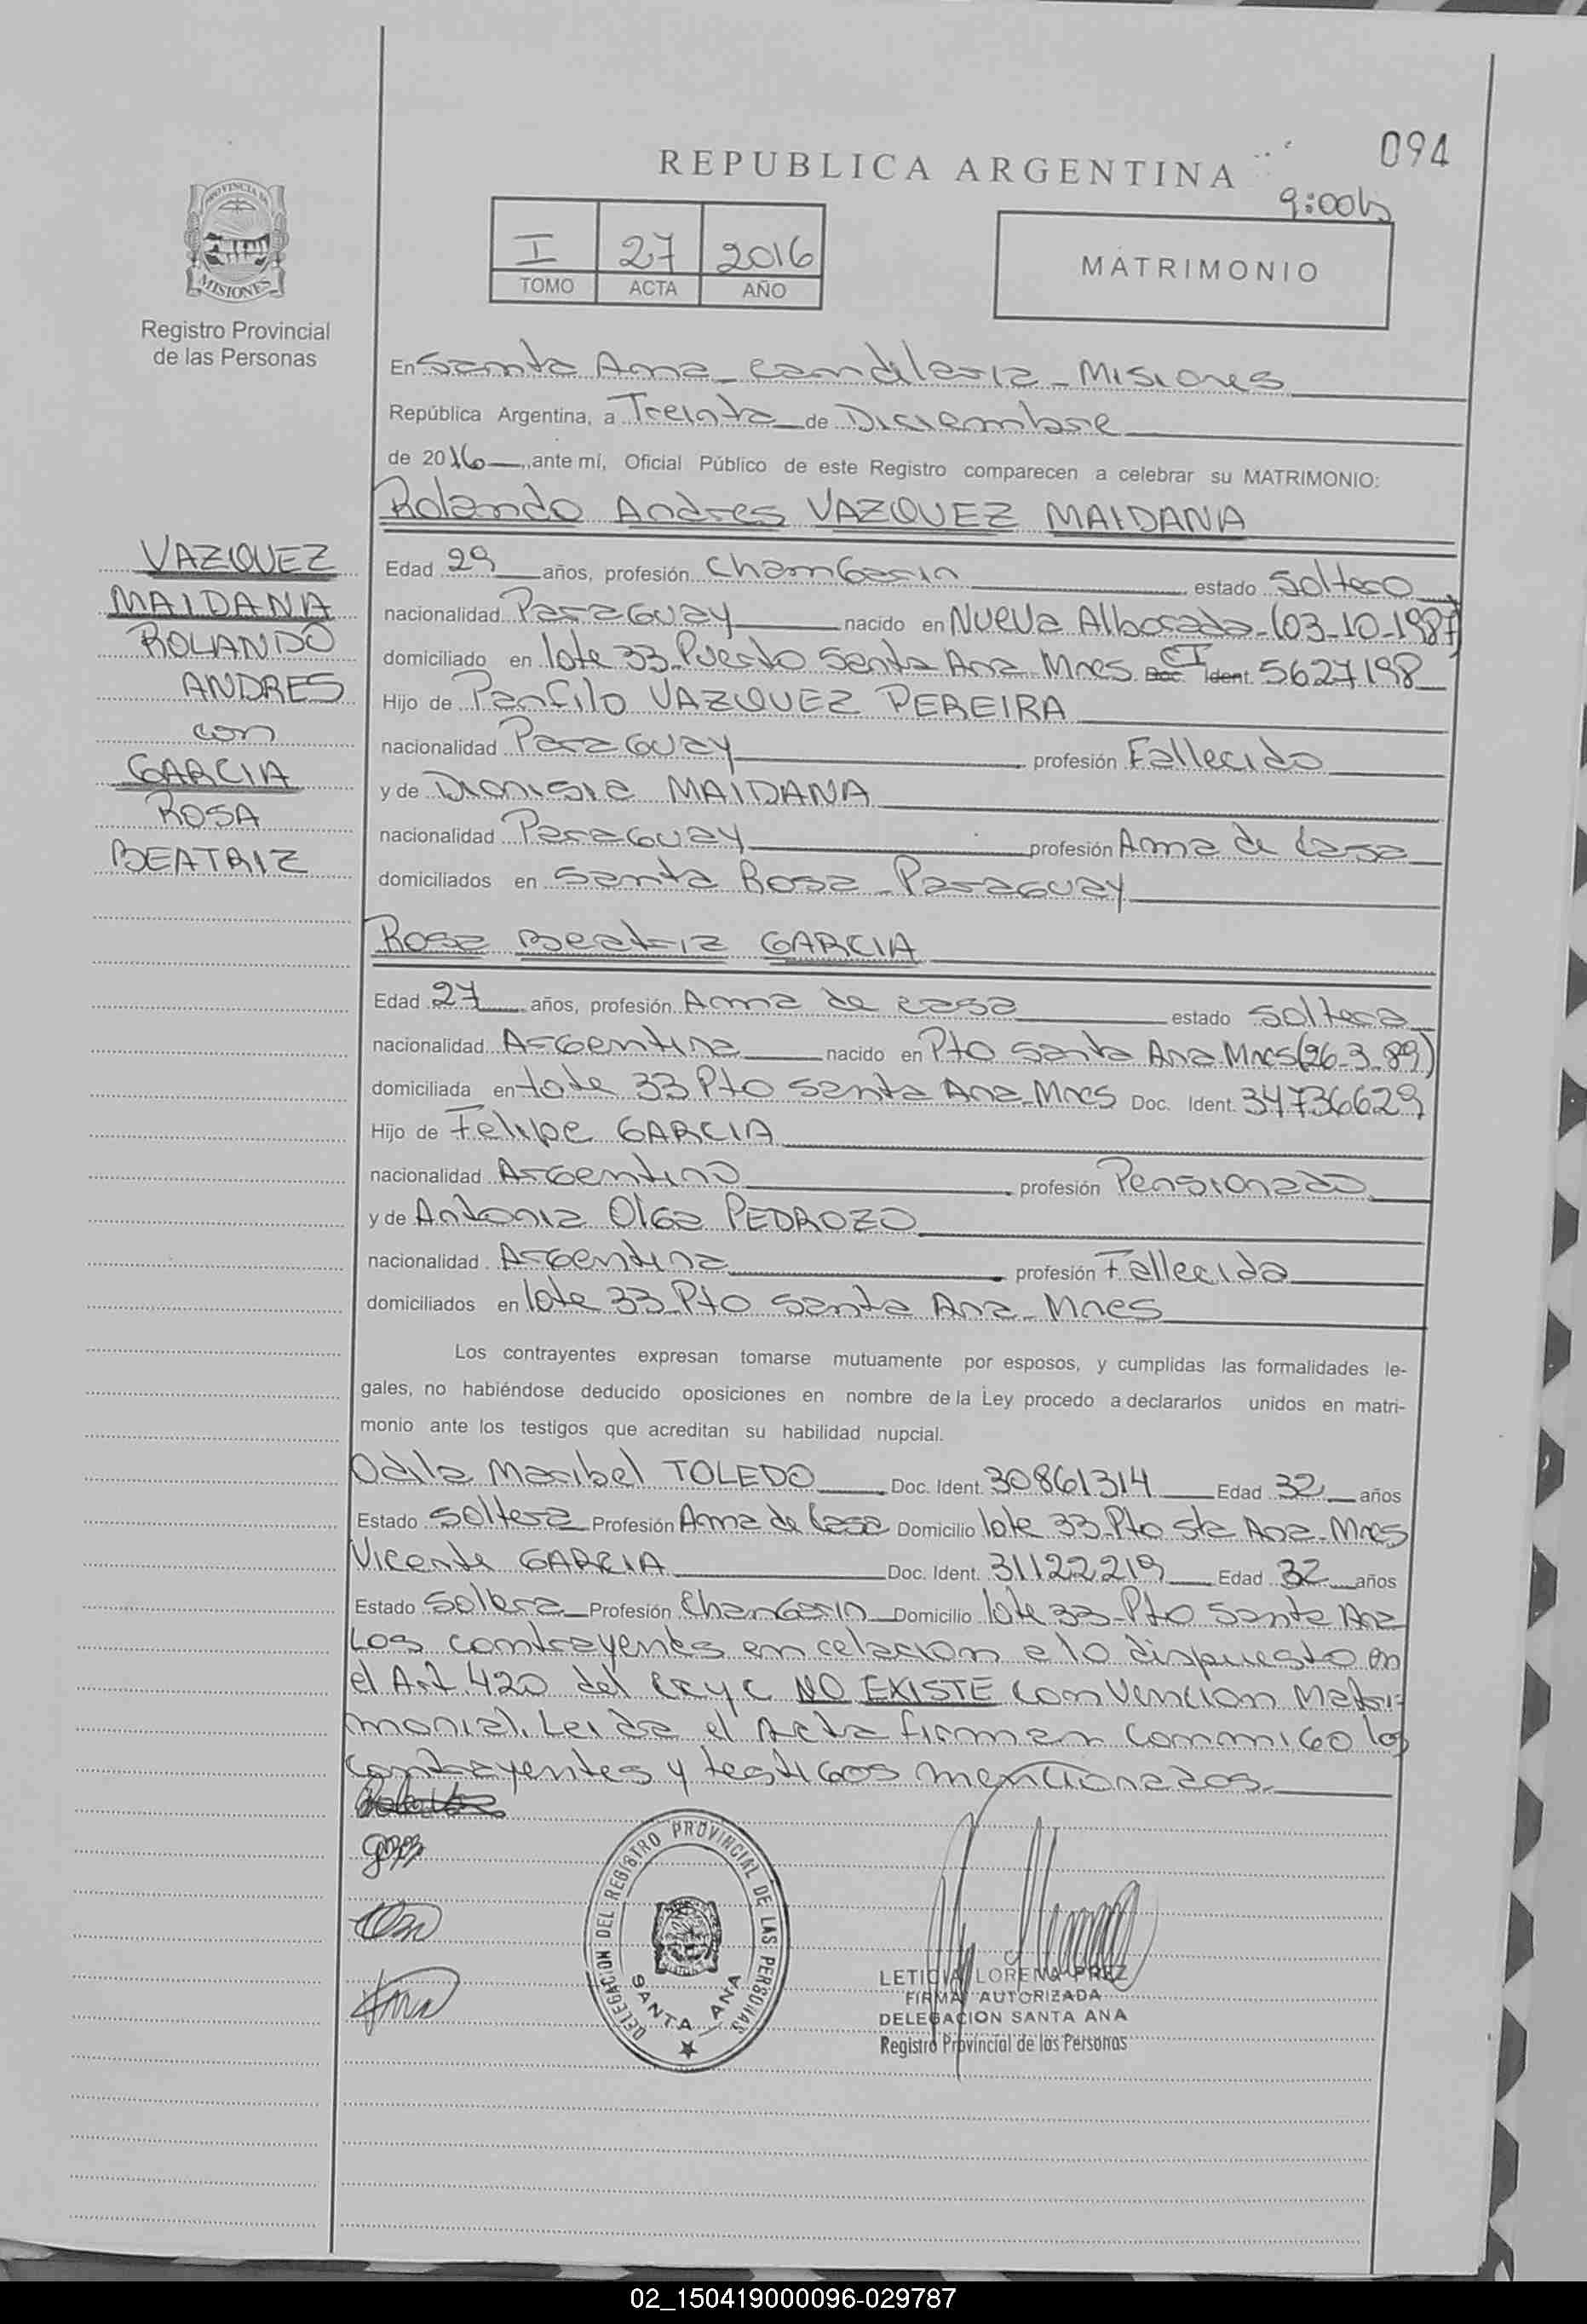 094
REPUBLICA ARGENTINA
9:00hs
PROVINCIA DE
MISIONES
Registro Provincial
de las Personas
I 27 2016
TOMO ACTA AÑO
MATRIMONIO
En Santa Ana - Candelaria - Misiones
República Argentina, a Treinta de Diciembre
de 2016, ante mí, Oficial Público de este Registro comparecen a celebrar su MATRIMONIO:
Rolando Andres VAZQUEZ MAIDANA
VAZQUEZ
MAIDANA
ROLANDO
ANDRES
con
GARCIA
ROSA
BEATRIZ
Edad 29 años, profesión Chamgarin estado Soltero
nacionalidad Paraguay nacido en Nueva Alborada - (03-10-1987)
domiciliado en lote 33 - Puerto Santa Ana - Mnes. Doc. CI Ident. 5627198
Hijo de Panfilo VAZQUEZ PEREIRA
nacionalidad Paraguay profesión Fallecido
y de Dionisia MAIDANA
nacionalidad Paraguay profesión Ama de Casa
domiciliados en Santa Rosa - Paraguay
Rosa Beatriz GARCIA
Edad 27 años, profesión Ama de casa estado Soltera
nacionalidad Argentina nacido en Pto Santa Ana Mnes (26-3-89)
domiciliada en lote 33 Pto Santa Ana - Mnes Doc. Ident. 34736629
Hijo de Felipe GARCIA
nacionalidad Argentino profesión Pensionado
y de Antonia Olga PEDROZO
nacionalidad Argentina profesión Fallecida
domiciliados en lote 33 - Pto Santa Ana - Mnes
Los contrayentes expresan tomarse mutuamente por esposos, y cumplidas las formalidades le-
gales, no habiéndose deducido oposiciones en nombre de la Ley procedo a declararlos unidos en matri-
monio ante los testigos que acreditan su habilidad nupcial.
Odila Maribel TOLEDO Doc. Ident. 30861314 Edad 32 años
Estado Soltera Profesión Ama de Casa Domicilio lote 33 - Pto Sta Ana - Mnes
Vicente GARCIA Doc. Ident. 31122219 Edad 32 años
Estado Soltera Profesión Changarin Domicilio lote 33 - Pto Santa Ana
Los contrayentes en relacion a lo dispuesto en
el Art. 420 del CCyC NO EXISTE Convencion Matri-
monial. Leida el Acta firman conmigo los
contrayentes y testigos mencionados.
DELEGACION DEL REGISTRO PROVINCIAL DE LAS PERSONAS
SANTA ANA
LETICIA LORENA
FIRMA AUTORIZADA
DELEGACION SANTA ANA
Registro Provincial de las Personas
02_150419000096-029787